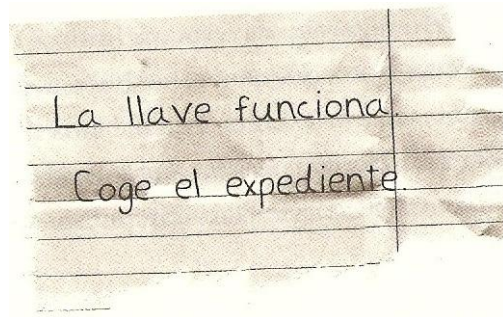 La llave funciona.
Coge el expediente.